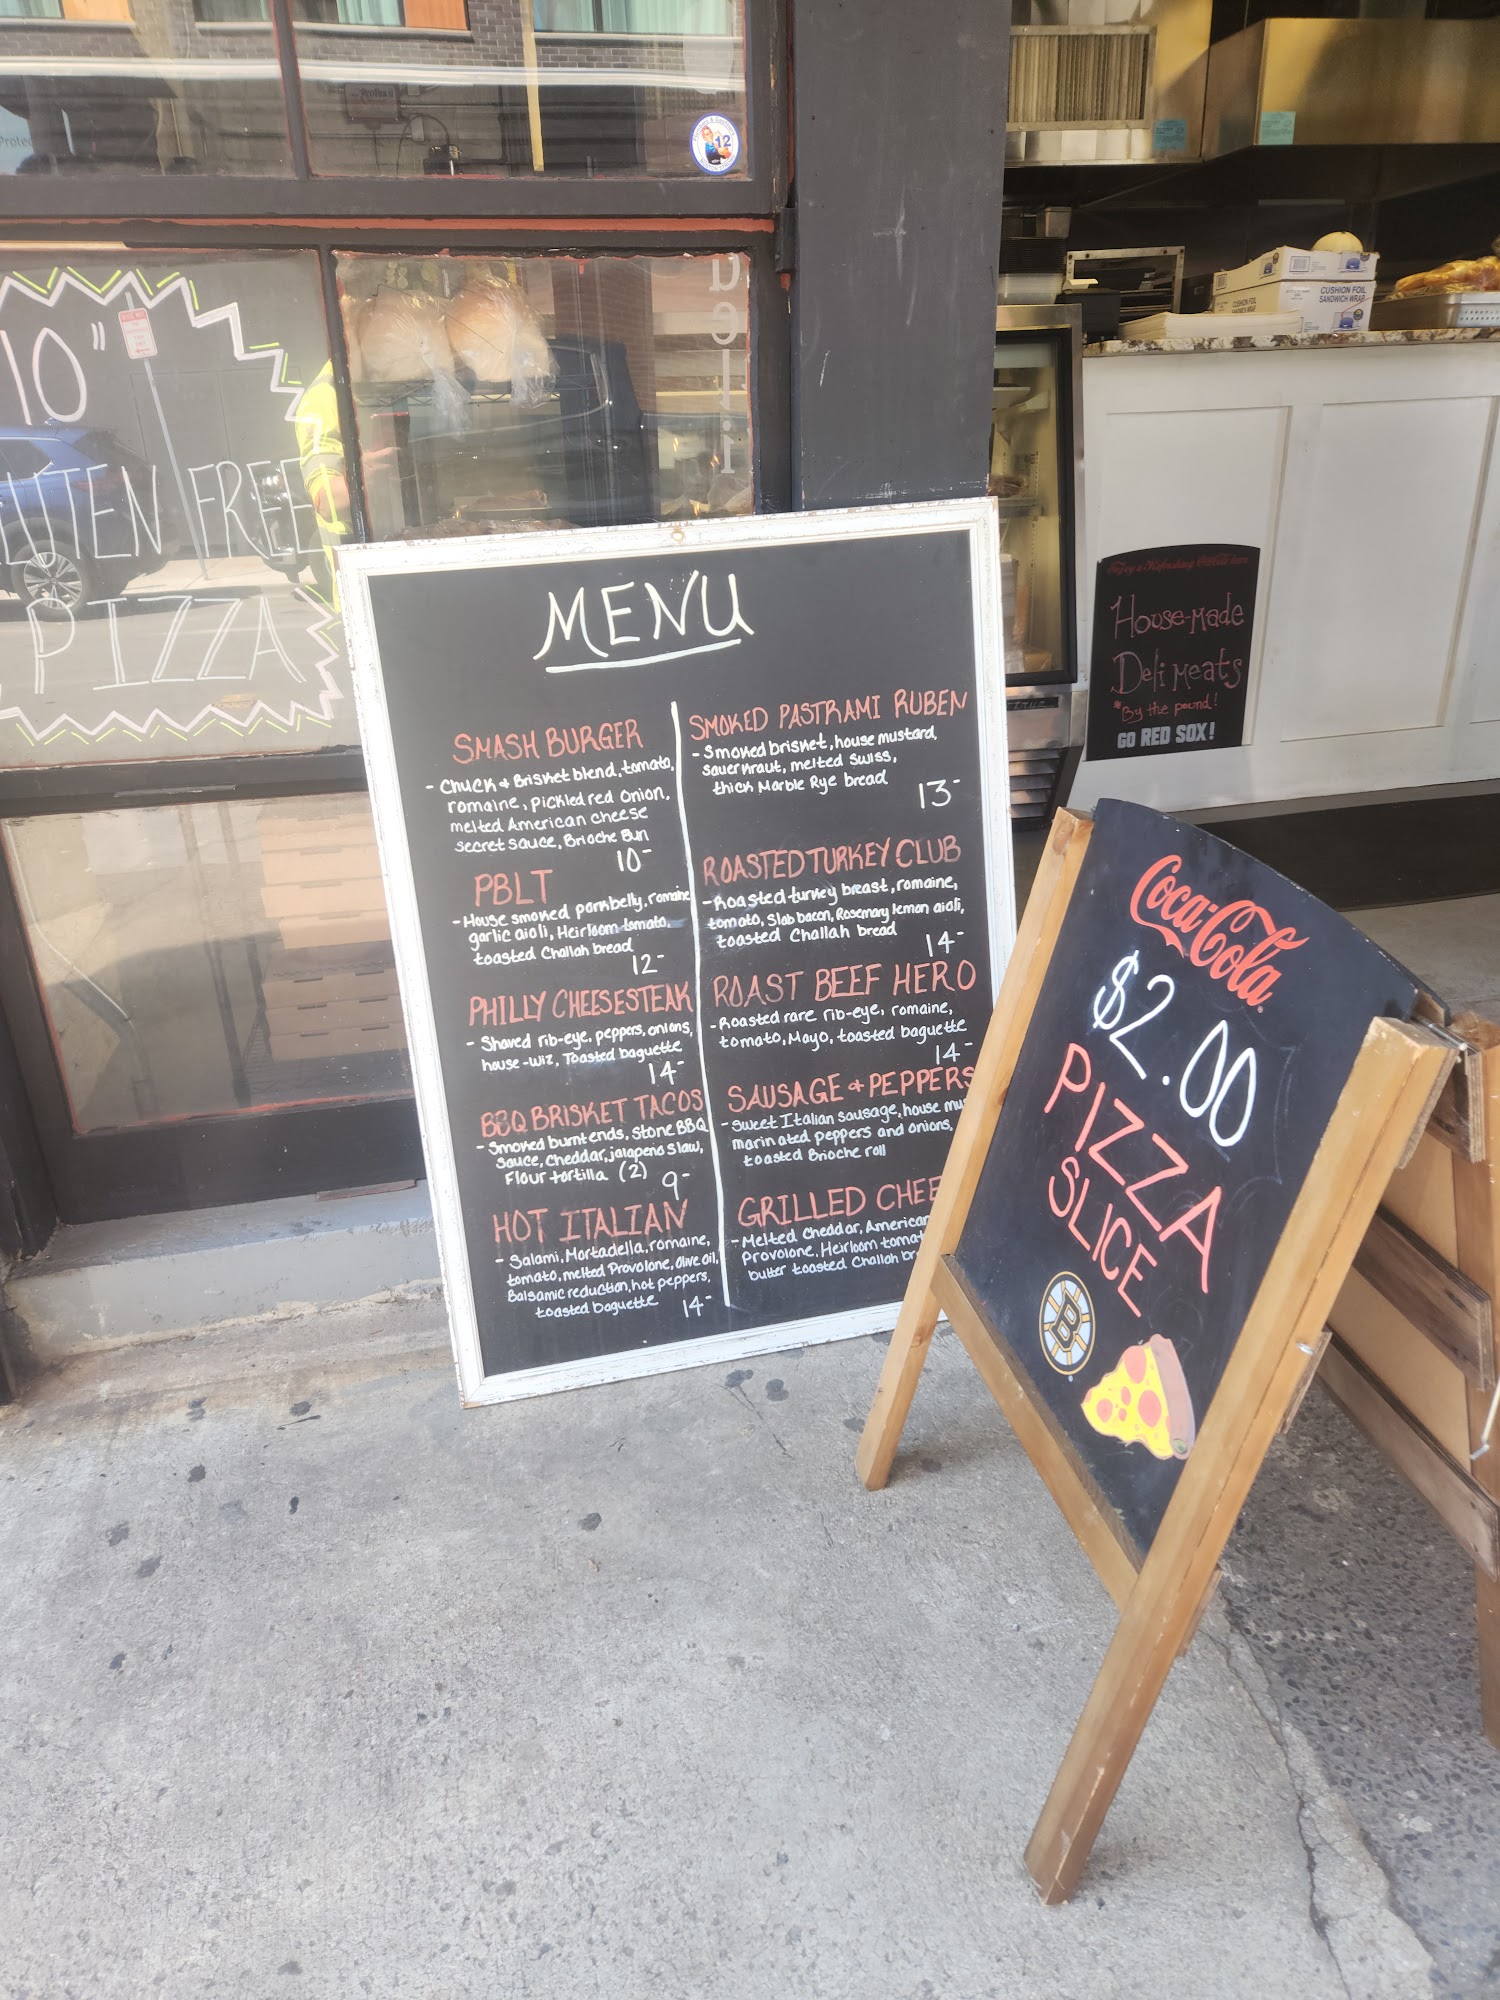 10"
GLUTEN FREE
PIZZA
deli
12
CUSHION FOIL
SANDWICH WRAP
House-Made
Deli Meats
*By the pound!
GO RED SOX!
MENU
SMASH BURGER
- Chuck + Brisket blend, tomato,
romaine, pickled red onion,
melted American cheese
secret sauce, Brioche Bun
10-
PBLT
- House smoked porkbelly, romaine
garlic aioli, Heirloom tomato,
toasted Challah bread
12-
PHILLY CHEESESTEAK
- Shaved rib-eye, peppers, onions,
house-wiz, Toasted baguette
14-
BBQ BRISKET TACOS
- Smoked burnt ends, Stone BBQ
sauce, cheddar, jalapeno slaw,
Flour tortilla (2)
9-
HOT ITALIAN
- Salami, Mortadella, romaine,
tomato, melted Provolone, olive oil,
Balsamic reduction, hot peppers,
toasted baguette
14-
SMOKED PASTRAMI RUBEN
- Smoked brisket, house mustard,
sauerkraut, melted swiss,
thick Marble Rye bread
13-
ROASTED TURKEY CLUB
- Roasted turkey breast, romaine,
tomato, Slab bacon, Rosemary lemon aioli,
toasted Challah bread
14-
ROAST BEEF HERO
- Roasted rare rib-eye, romaine,
tomato, Mayo, toasted baguette
14-
SAUSAGE + PEPPERS
- Sweet Italian sausage, house mu
marinated peppers and onions,
toasted Brioche roll
GRILLED CHEE
- Melted cheddar, American
Provolone, Heirloom tomat
butter toasted Challah br
Coca-Cola
$2.00
PIZZA
SLICE
B